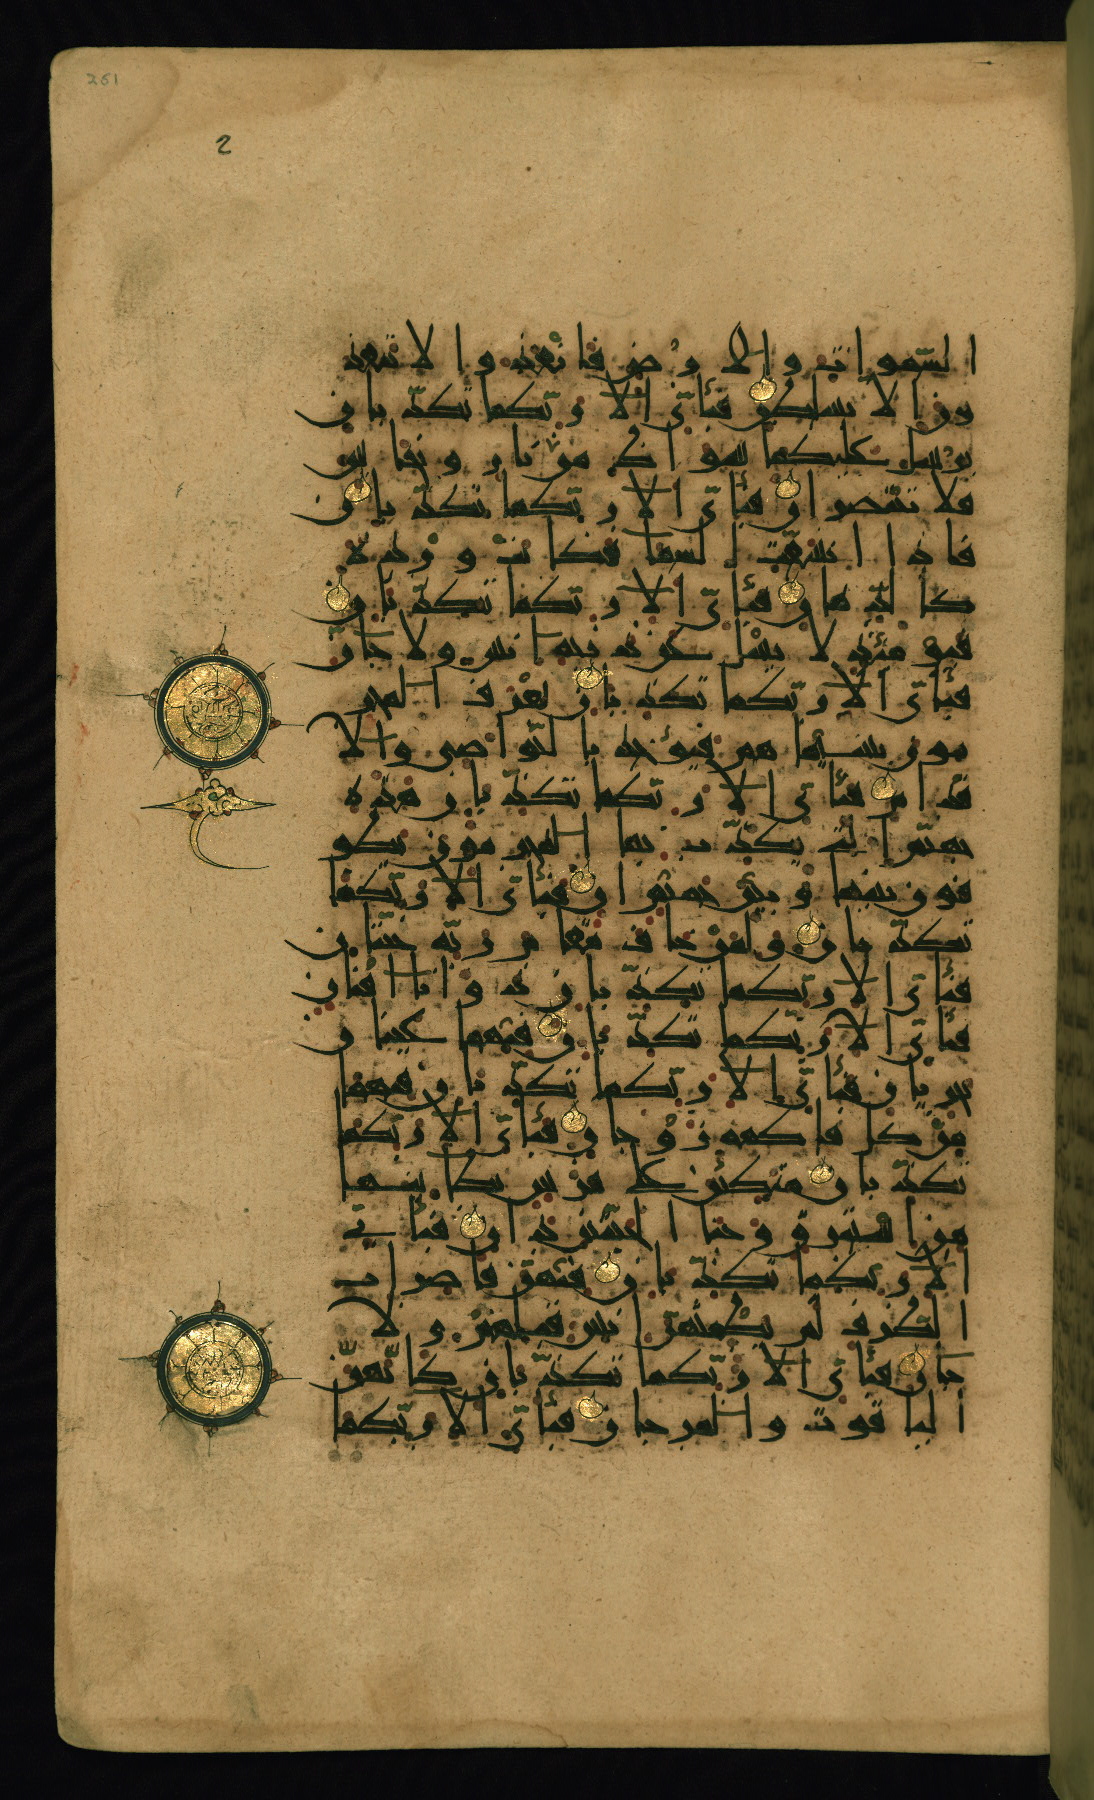 261
2
السموات والارض فانفذوا لا تنفذ
ون الا بسلطن فبأي الا ربكما تكذبان
يرسل عليكما شواظ من نار ونحاس
فلا تنتصران فبأي الا ربكما تكذبان
فاذا انشقت السما فكانت وردة
كالدهان فبأي الا ربكما تكذبان
فيومئذ لا يسئل عن ذنبه انس ولا جان
فبأي الا ربكما تكذبان يعرف المجر
مون بسيماهم فيؤخذ بالنواصي والا
قدام فبأي الا ربكما تكذبان هذه
جهنم التي يكذب بها المجرمون يطو
فون بينها وبين حميم ان فبأي الا ربكما
تكذبان ولمن خاف مقام ربه جنتان
فبأي الا ربكما تكذبان ذواتا افنان
فبأي الا ربكما تكذبان فيهما عينان
تجريان فبأي الا ربكما تكذبان فيهما
من كل فاكهة زوجان فبأي الا ربكما
تكذبان متكئين على فرش بطائنها
من استبرق وجنا الجنتين دان فبأي
الا ربكما تكذبان فيهن قاصرات
الطرف لم يطمثهن انس قبلهم ولا
جان فبأي الا ربكما تكذبان كانهن
الياقوت والمرجان فبأي الا ربكما